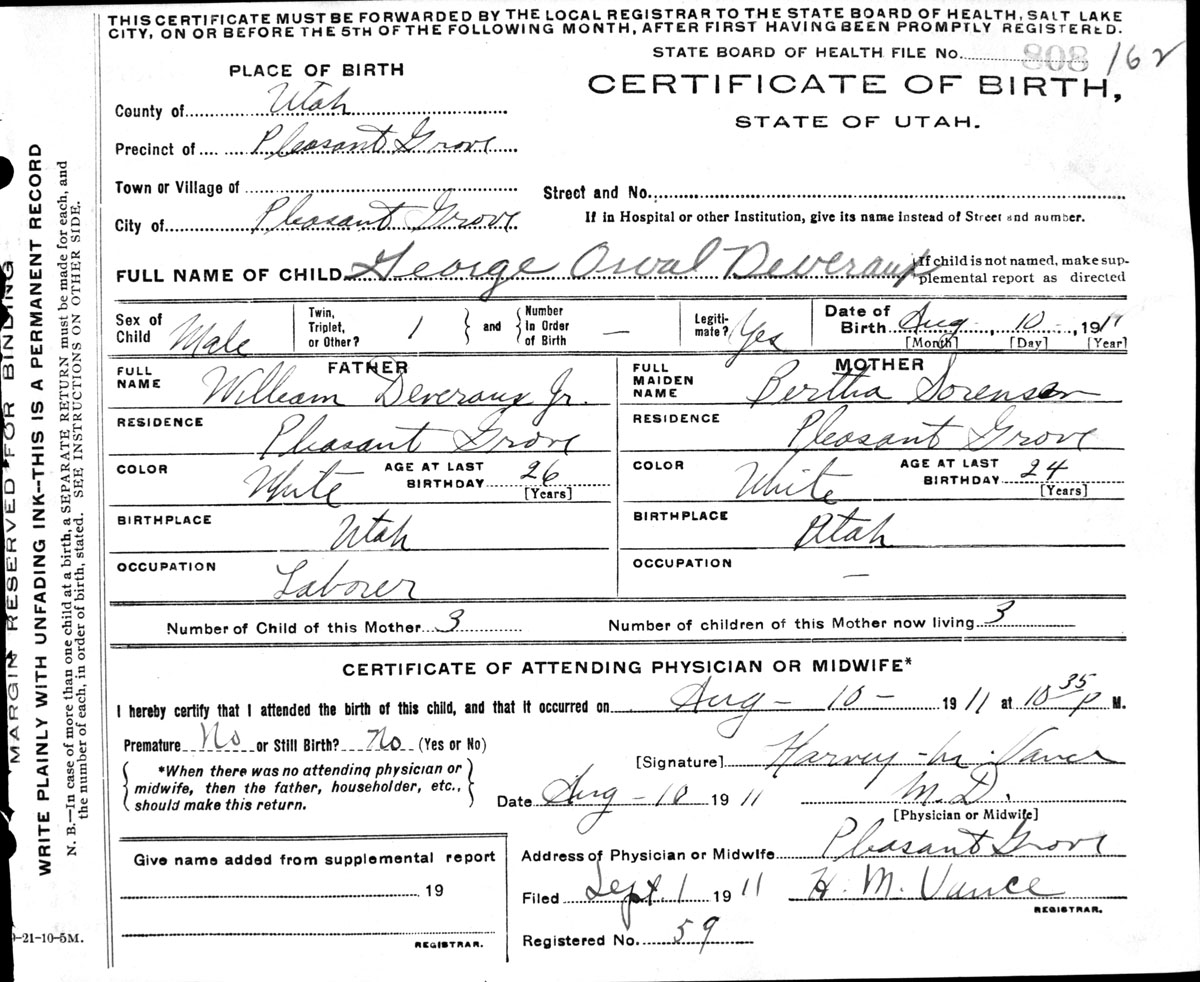 THIS CERTIFICATE MUST BE FORWARDED BY THE LOCAL REGISTRAR TO THE STATE BOARD OF HEALTH, SALT LAKE
CITY, ON OR BEFORE THE 5TH OF THE FOLLOWING MONTH, AFTER FIRST HAVING BEEN PROMPTLY REGISTERED.
STATE BOARD OF HEALTH FILE No. 808 162
PLACE OF BIRTH
CERTIFICATE OF BIRTH,
STATE OF UTAH.
County of Utah
Precinct of Pleasant Grove
Town or Village of
Street and No.
City of Pleasant Grove
If in Hospital or other Institution, give its name instead of Street and number.
FULL NAME OF CHILD George Orval Deveraux
If child is not named, make sup-
plemental report as directed
Sex of Child Male
Twin, Triplet, or Other? 1
and Number In Order of Birth –
Legiti-mate? Yes
Date of Birth Aug 10 1911
[Month] [Day] [Year]
FATHER
FULL NAME William Deveraux Jr.
RESIDENCE Pleasant Grove
COLOR White AGE AT LAST BIRTHDAY 26 [Years]
BIRTHPLACE Utah
OCCUPATION Laborer
MOTHER
FULL MAIDEN NAME Bertha Sorensen
RESIDENCE Pleasant Grove
COLOR White AGE AT LAST BIRTHDAY 24 [Years]
BIRTHPLACE Utah
OCCUPATION –
Number of Child of this Mother 3 Number of children of this Mother now living 3
CERTIFICATE OF ATTENDING PHYSICIAN OR MIDWIFE*
I hereby certify that I attended the birth of this child, and that it occurred on Aug – 10 – 1911 at 10 35 P M.
Premature No or Still Birth? No (Yes or No)
*When there was no attending physician or
midwife, then the father, householder, etc.,
should make this return.
[Signature] Harvey M. Vance
Date Aug – 10 1911 M.D.
[Physician or Midwife]
Give name added from supplemental report
19
REGISTRAR.
Address of Physician or Midwife Pleasant Grove
Filed Sept. 1 1911 H. M. Vance
REGISTRAR.
Registered No. 59
-21-10-5M.
MARGIN RESERVED FOR BINDING
WRITE PLAINLY WITH UNFADING INK--THIS IS A PERMANENT RECORD
N. B.—In case of more than one child at a birth, a SEPARATE RETURN must be made for each, and
the number of each, in order of birth, stated. SEE INSTRUCTIONS ON OTHER SIDE.